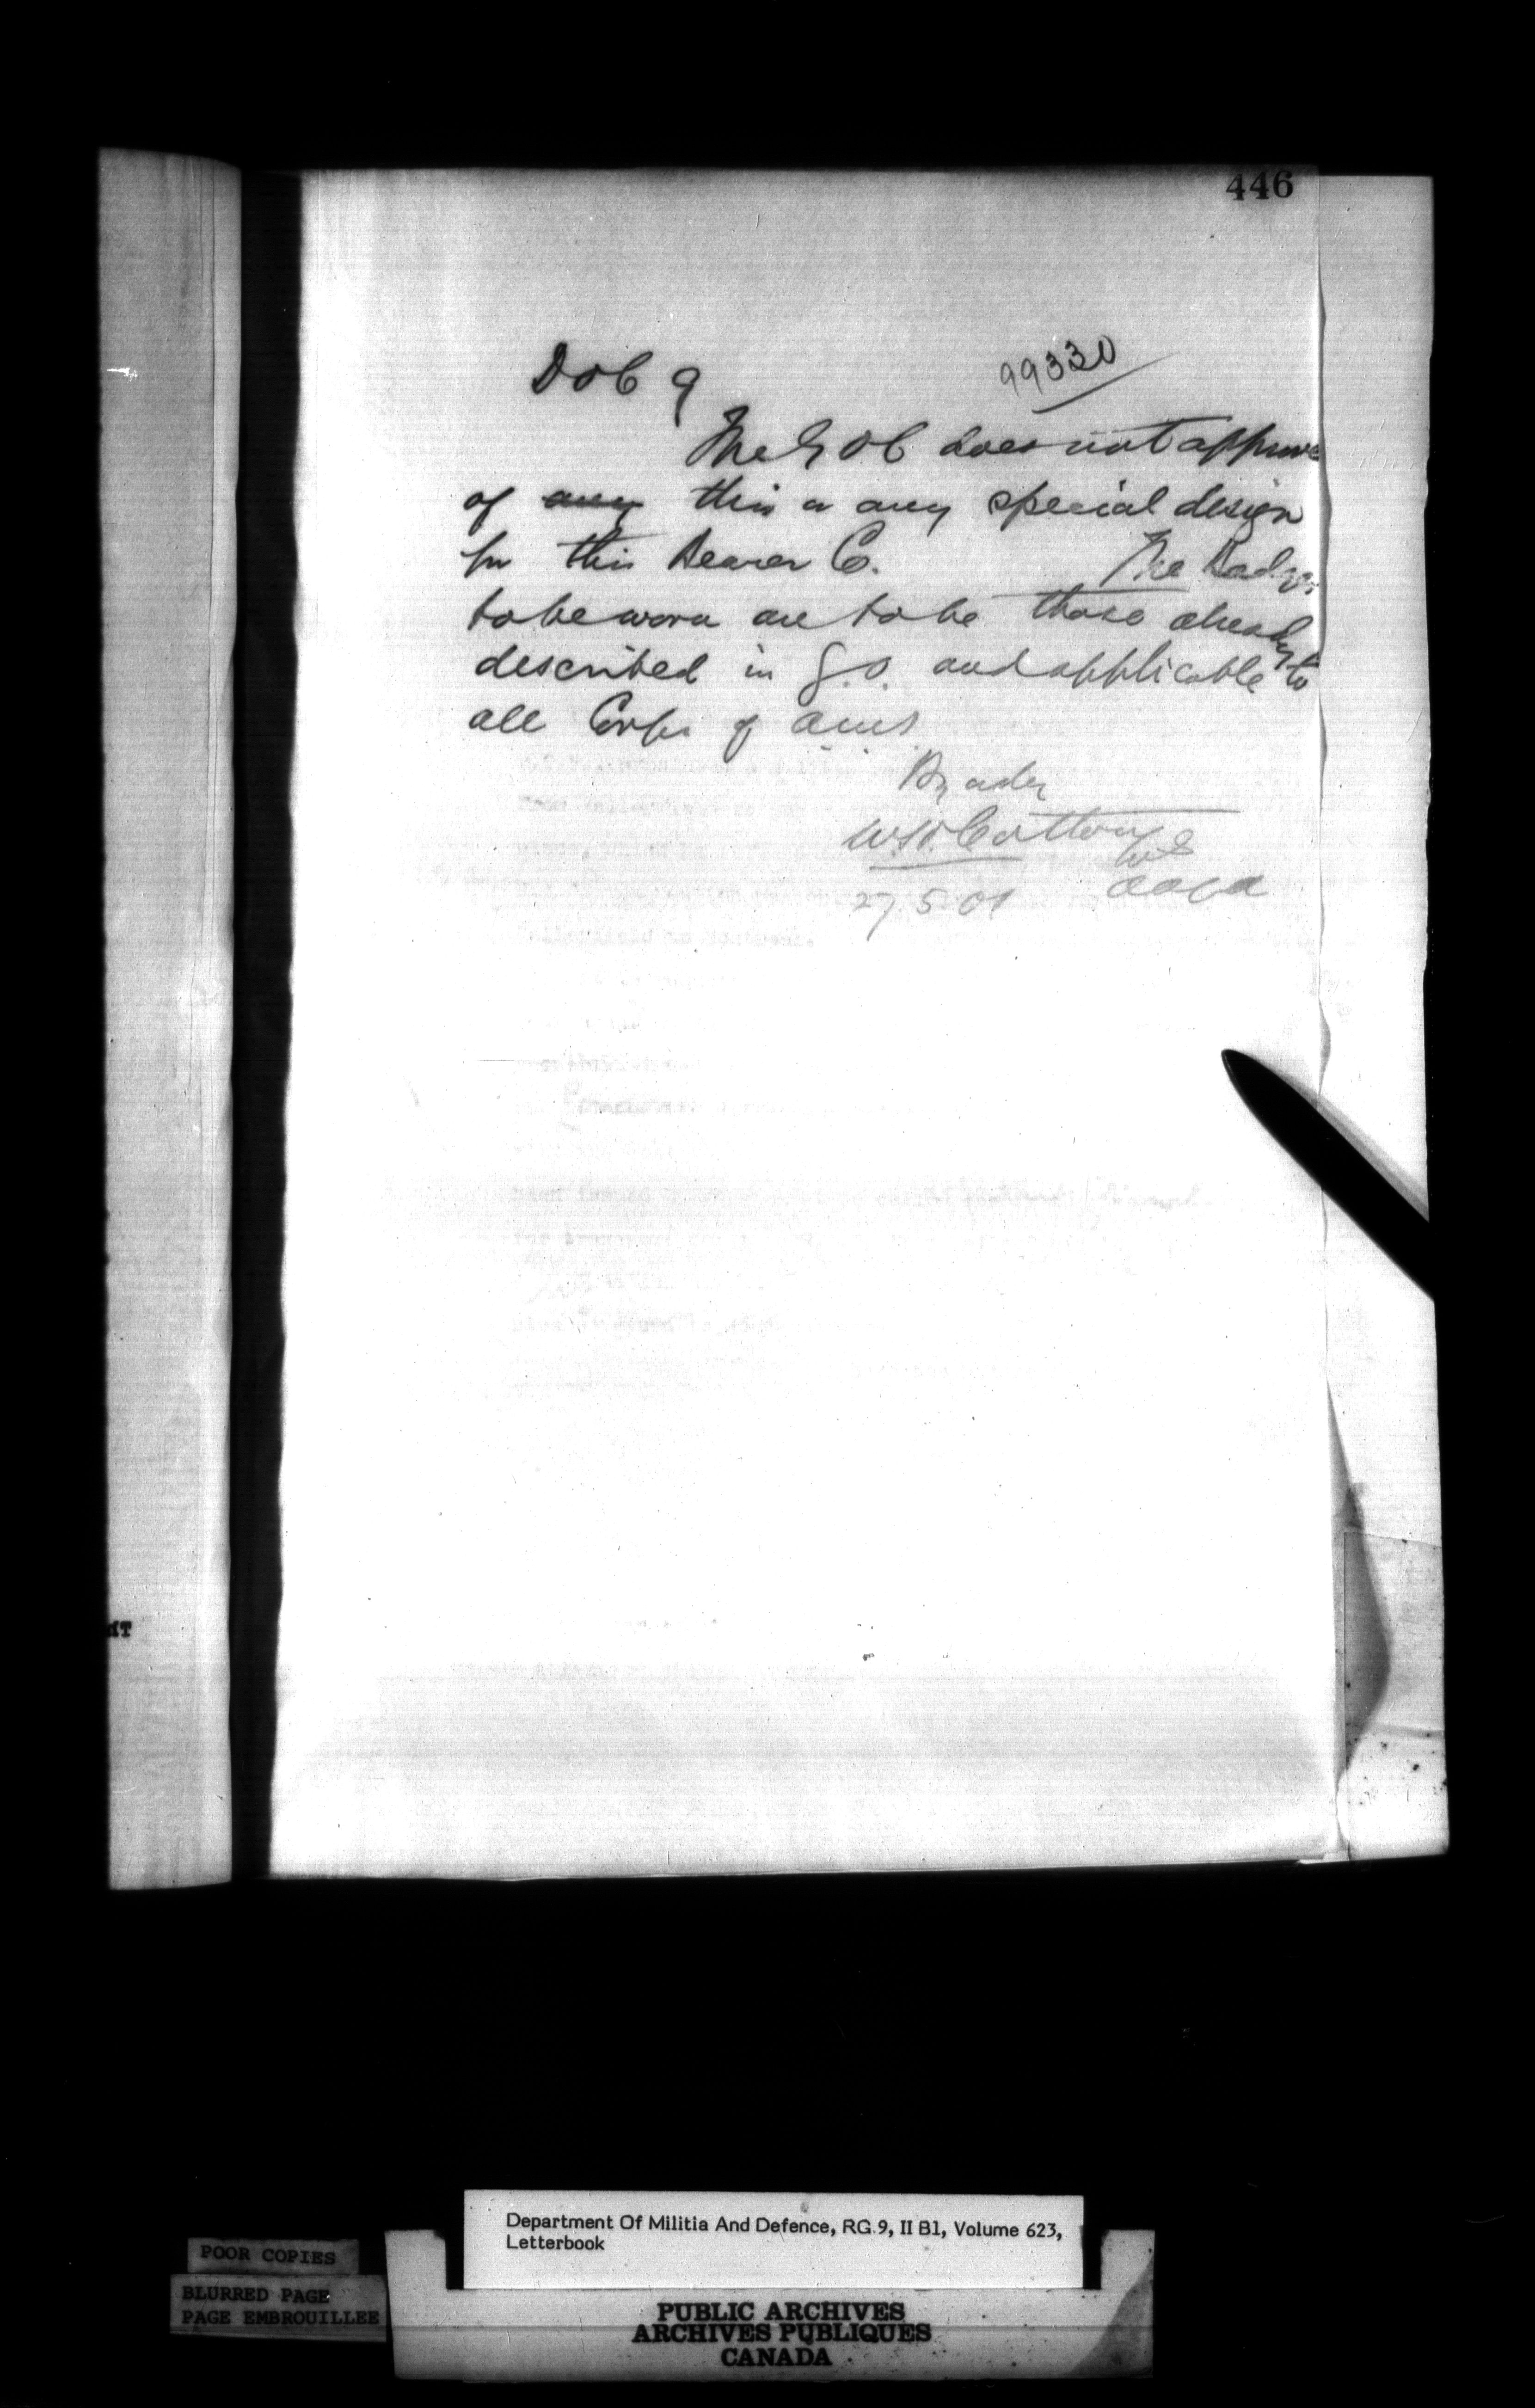 446
99330
DOC 9
The GOC does not approve
of any this or any special design
for this Bearer Co. The Badges
to be worn are to be those already
described in G.O. and applicable to
all Corps of arms
By order
W.H. Cotton
27.5.01
NT
Department Of Militia And Defence, RG 9, II B1, Volume 623,
Letterbook
POOR COPIES
BLURRED PAGE
PAGE EMBROUILLEE
PUBLIC ARCHIVES
ARCHIVES PUBLIQUES
CANADA